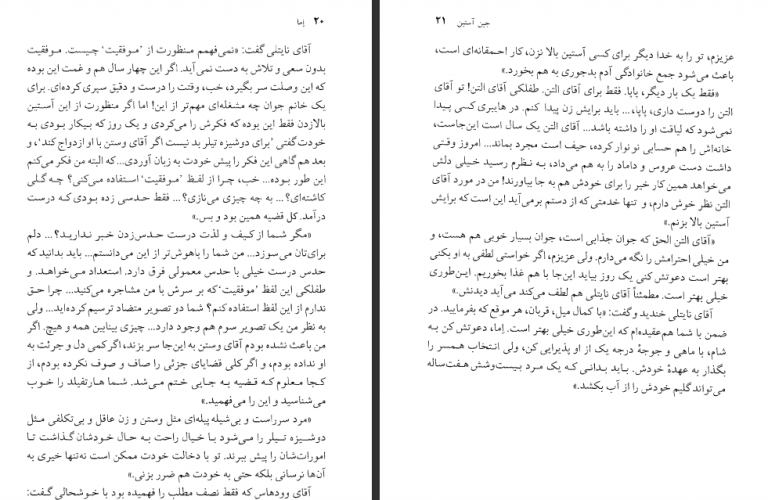 ۲۰ اِما
آقای نایتلی گفت: «نمی‌فهمم منظورت از ‘موفقیت’ چیست. موفقیت
بدون سعی و تلاش به دست نمی‌آید. اگر این چهار سال هم و غمت این بوده
که این وصلت سر بگیرد، خب، وقتت را درست و دقیق سپری کرده‌ای. برای
یک خانم جوان چه مشغله‌ای مهم‌تر از این! اما اگر منظورت از این آستین
بالازدن فقط این بوده که فکرش را می‌کردی و یک روز که بیکار بودی به
خودت گفتی ‘برای دوشیزه تیلر بد نیست اگر آقای وستن با او ازدواج کند’، و
بعد هم گاهی این فکر را پیش خودت به زبان آوردی... که البته من فکر می‌کنم
این طور بوده... خب، چرا از لفظ ‘موفقیت’ استفاده می‌کنی؟ چه گلی
کاشته‌ای؟... به چه چیزی می‌نازی؟... فقط حدسی زده بودی که درست
درآمد. کل قضیه همین بود و بس.»
«مگر شما از کیف و لذت درست حدس‌زدن خبر ندارید؟... دلم
برای‌تان می‌سوزد... من شما را باهوش‌تر از این می‌دانستم... باید بدانید که
حدس درست خیلی با حدس معمولی فرق دارد. استعداد می‌خواهد. و
طفلکی این لفظ ‘موفقیت’ که بر سرش با من مشاجره می‌کنید... چرا حق
ندارم از این لفظ استفاده کنم؟ شما دو تصویر متضاد ترسیم کرده‌اید... ولی
به نظر من یک تصویر سوم هم وجود دارد... چیزی بینابین همه و هیچ. اگر
من باعث نشده بودم آقای وستن به این‌جا سر بزند، اگر کمی دل و جرئت به
او نداده بودم، و اگر کلی قضایای جزئی را صاف و صوف نکرده بودم، از
کجا معلوم که قضیه به جایی ختم می‌شد. شما هارتفیلد را خوب
می‌شناسید و این را می‌فهمید.»
«مرد سرراست و بی‌شیله پیله‌ای مثل وستن و زن عاقل و بی‌تکلفی مثل
دوشیزه تیلر را می‌شود با خیال راحت به حال خودشان گذاشت تا
امورات‌شان را پیش ببرند. تو با دخالت خودت ممکن است نه‌تنها خیری به
آن‌ها نرسانی بلکه حتی به خودت هم ضرر بزنی.»
آقای وودهاس که فقط نصف مطلب را فهمیده بود با خوشحالی گفت:
جین آستین ۲۱
عزیزم، تو را به خدا دیگر برای کسی آستین بالا نزن، کار احمقانه‌ای است،
باعث می‌شود جمع خانوادگی آدم بدجوری به هم بخورد.»
«فقط یک بار دیگر، پاپا. فقط برای آقای التن. طفلکی آقای التن! تو آقای
التن را دوست داری، پاپا،... باید برایش زن پیدا کنم. در هایبری کسی پیدا
نمی‌شود که لیاقت او را داشته باشد... آقای التن یک سال است این‌جاست،
خانه‌اش را هم حسابی نونوار کرده، حیف است مجرد بماند... امروز وقتی
داشت دست عروس و داماد را به هم می‌داد، به نظرم رسید خیلی دلش
می‌خواهد همین کار خیر را برای خودش هم به جا بیاورند! من در مورد آقای
التن نظر خوش دارم، و تنها خدمتی که از دستم برمی‌آید این است که برایش
آستین بالا بزنم.»
«آقای التن الحق که جوان جذابی است، جوان بسیار خوبی هم هست، و
من خیلی احترامش را نگه می‌دارم. ولی عزیزم، اگر خواستی لطفی به او بکنی
بهتر است دعوتش کنی یک روز بیاید این‌جا با هم غذا بخوریم. این‌طوری
خیلی بهتر است. مطمئناً آقای نایتلی هم لطف می‌کند می‌آید دیدنش.»
آقای نایتلی خندید و گفت: «با کمال میل، قربان، هر موقع که بفرمایید. در
ضمن با شما هم‌عقیده‌ام که این‌طوری خیلی بهتر است. اِما، دعوتش کن به
شام، با ماهی و جوجهٔ درجه یک از او پذیرایی کن، ولی انتخاب همسر را
بگذار به عهدهٔ خودش. باید بدانی که یک مرد بیست‌وشش هفت‌ساله
می‌تواند گلیم خودش را از آب بکشد.»